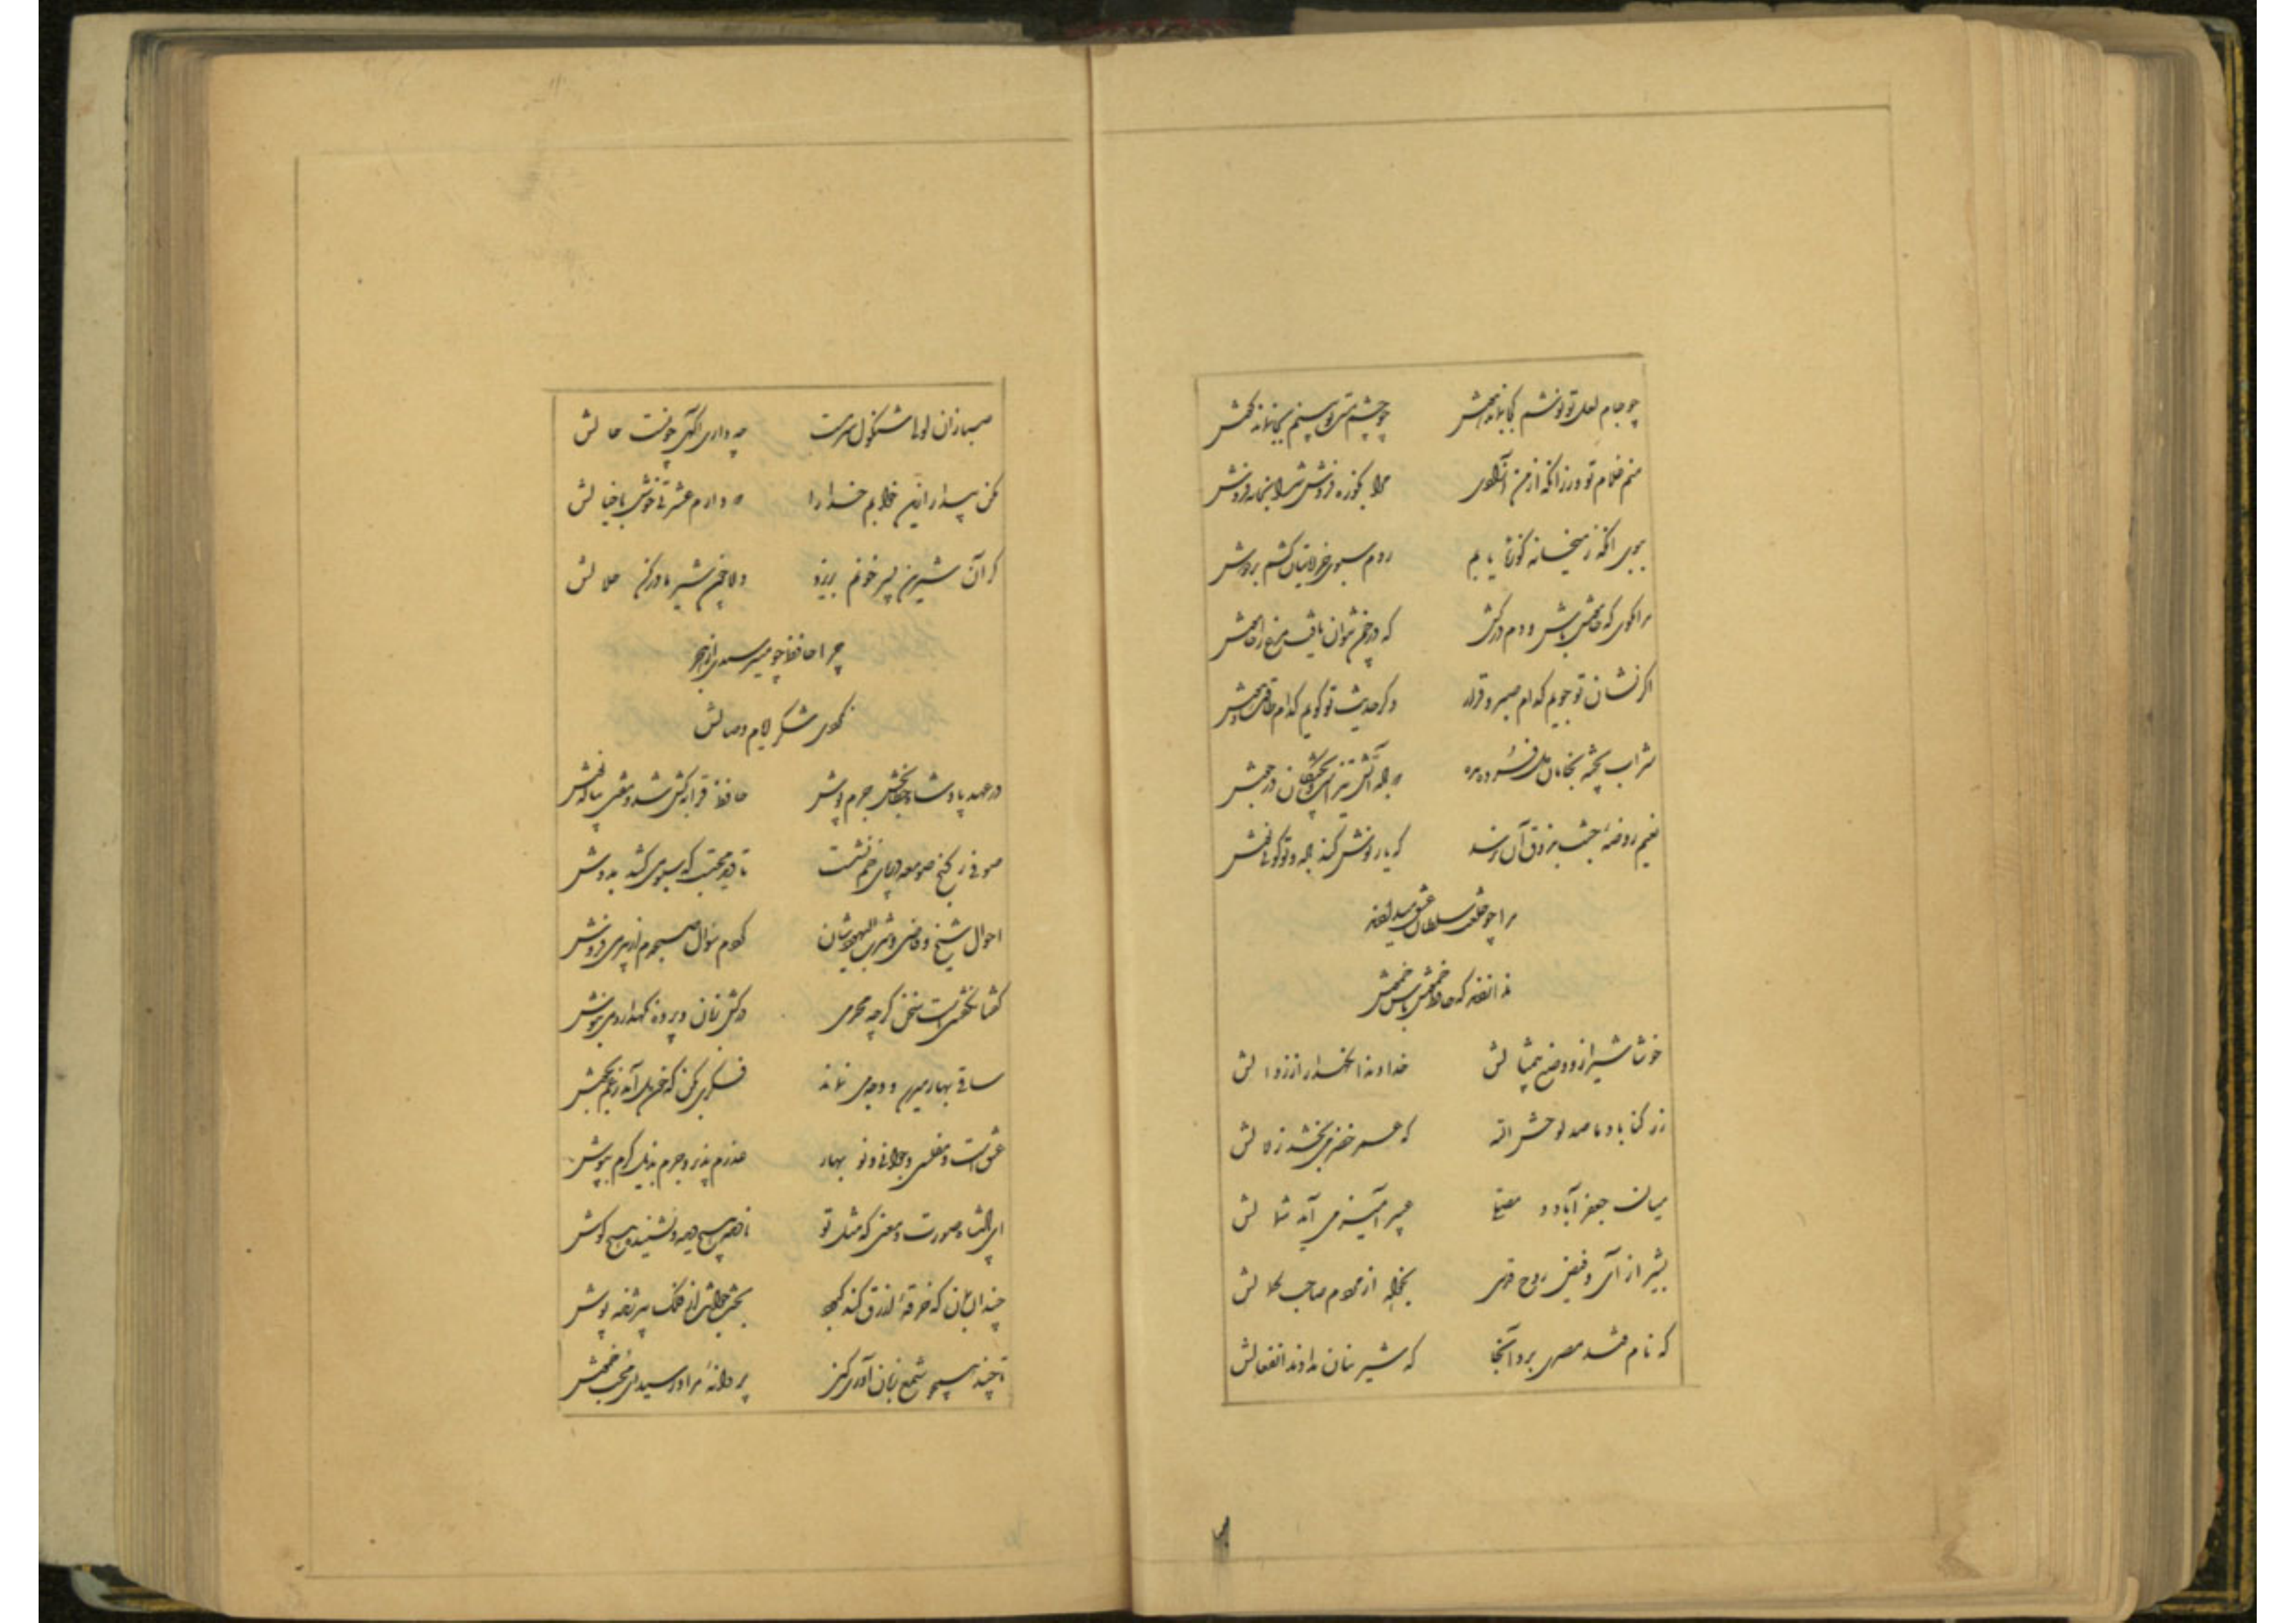 چو جام لعل تو نوشم کجا بماند هوش چو چشم مست تو بینم کجا نماند گوش
منم غلام تو ور زانکه از من آزادی مرا بکوزه فروش شرابخانه فروش
ببوی آنکه ز میخانه کوزه یابم روم سبوی خراباتیان کشم بر دوش
مرا مگوی که خاموش باش و دم درکش که در چمن نتوان یافت مرغ را خاموش
اگر نشان تو جویم کدام صبر و قرار وگر حدیث تو گویم کدام طاقت و هوش
شراب پخته بخامان دل فسرده مده که باده آتش تیز است و پختگان در جوش
نعیم روضه جنت بذوق آن نرسد که یار نوش کند باده و تو گوئی نوش
مرا چو خلعت سلطان عشق میدادند
ندا زدند که حافظ خموش باش خموش
خوشا شیراز و وضع بیمثالش خداوندا نگهدار از زوالش
ز رکناباد ما صد لوحش الله که عمر خضر میبخشد زلالش
میان جعفرآباد و مصلی عبیر آمیز می آید شمالش
بشیراز آی و فیض روح قدسی بخواه از مردم صاحب کمالش
که نام قند مصری برد آنجا که شیرینان ندادند انفعالش
صبا زان لولی شنگول سرمست چه داری آگهی چونست حالش
مکن بیدار ازین خوابم خدا را که دارم عشرتی خوش با خیالش
گر آن شیرین پسر خونم بریزد دلا چون شیر مادر کن حلالش
چرا حافظ چو میترسیدی از هجر
نکردی شکر ایام وصالش
در عهد پادشاه خطابخش جرم پوش حافظ قرابه کش شد و مفتی پیاله نوش
صوفی ز کنج صومعه در پای خم نشست تا دید محتسب که سبو می کشد بدوش
احوال شیخ و قاضی و شرب الیهودشان کردم سؤال صبحدم از پیر می فروش
گفتا نگفتنیست سخن گرچه محرمی درکش زبان و پرده نگهدار و می بنوش
ساقی بهار میرسد و وجه می نماند فکری بکن که خون دل آمد ز غم بجوش
عشق است و مفلسی و جوانی و نو بهار عذرم پذیر و جرم بذیل کرم بپوش
ای پادشاه صورت و معنی که مثل تو نادیده هیچ دیده و نشنیده هیچ گوش
چندان بمان که خرقه ازرق کند قبول بخت جوانت از فلک پیر ژنده پوش
تا چند همچو شمع زبان آوری کنی پروانه مراد رسید ای محب خموش